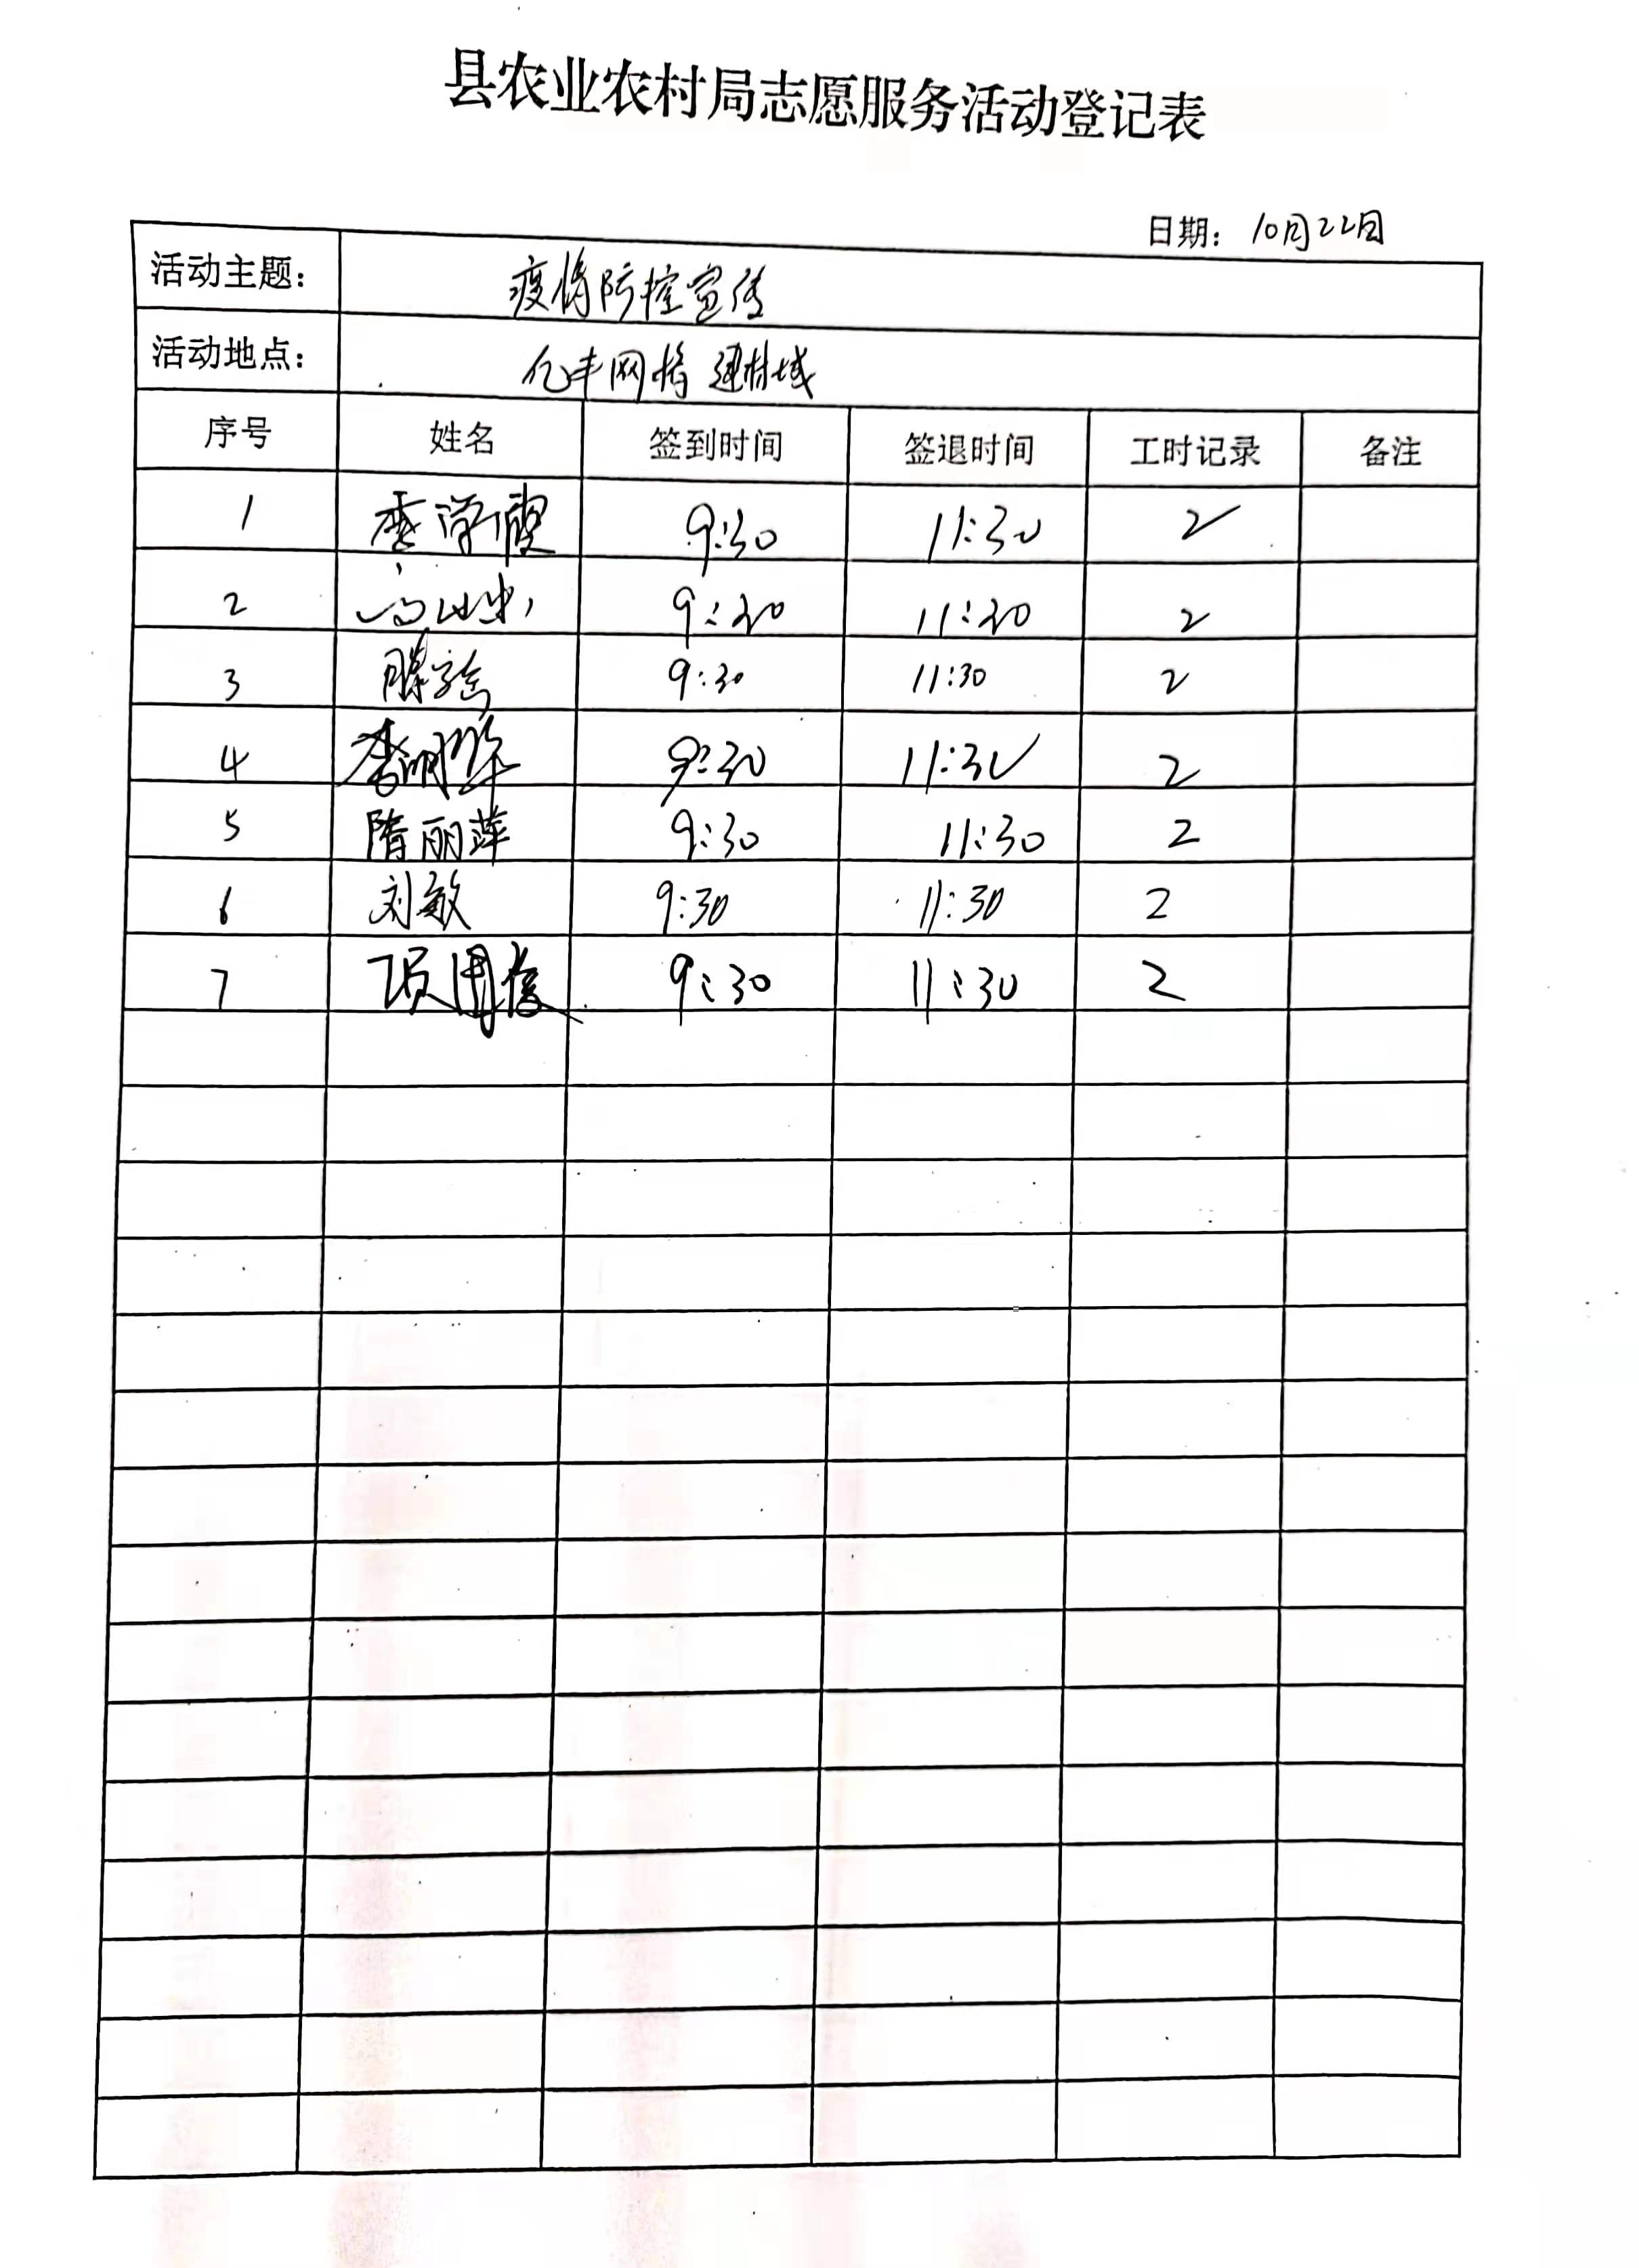 县农业农村局志愿服务活动登记表
日期： 10月22日
活动主题： 疫情防控宣传
活动地点： 亿丰网格 建材城
序号 姓名 签到时间 签退时间 工时记录 备注
1 李学霞 9:30 11:30 2
2 9:30 11:30 2
3 9:30 11:30 2
4 李明华 9:30 11:30 2
5 隋丽萍 9:30 11:30 2
6 刘敏 9:30 11:30 2
7 项国俊 9:30 11:30 2